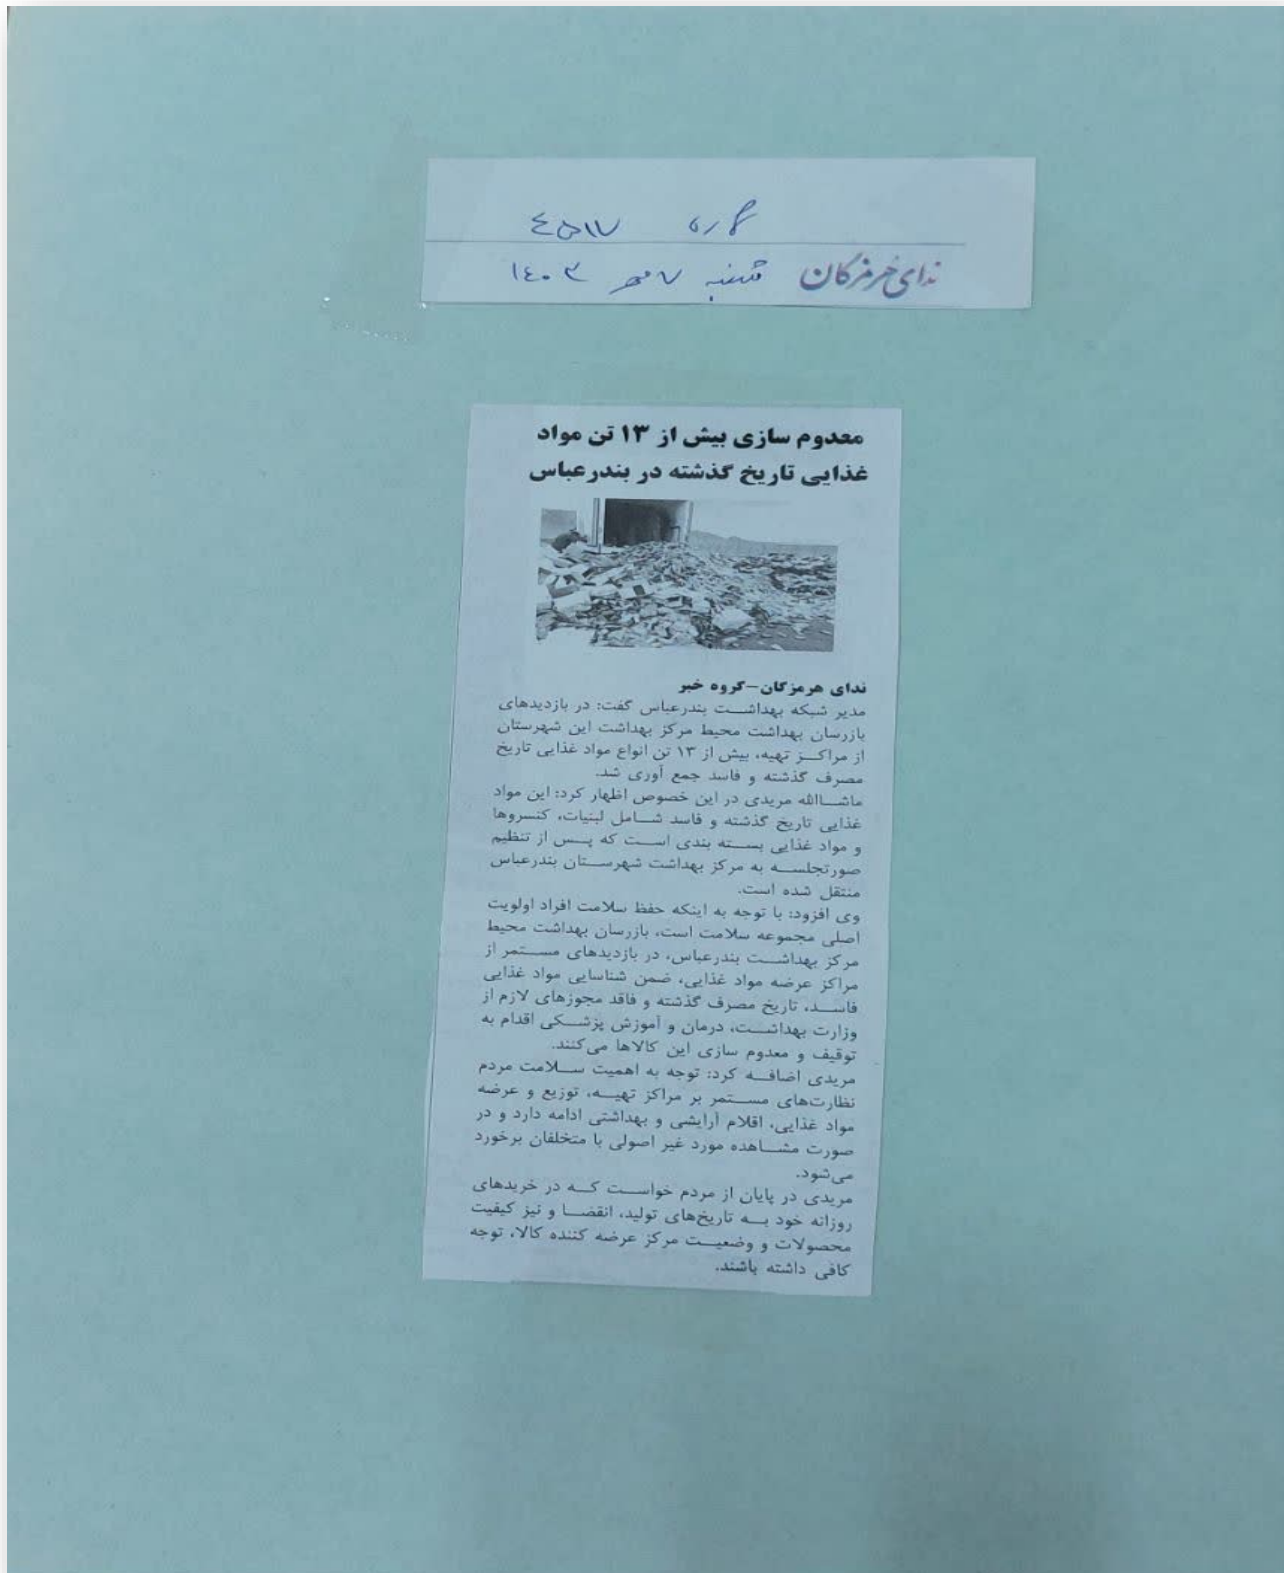 شماره ٤٥١٧
ندای هرمزگان شنبه ٧ مهر ١٤٠٣
معدوم سازی بیش از ۱۳ تن مواد
غذایی تاریخ گذشته در بندرعباس
ندای هرمزگان–گروه خبر
مدیر شبکه بهداشت بندرعباس گفت: در بازدیدهای
بازرسان بهداشت محیط مرکز بهداشت این شهرستان
از مراکز تهیه، بیش از ۱۳ تن انواع مواد غذایی تاریخ
مصرف گذشته و فاسد جمع آوری شد.
ماشاالله مریدی در این خصوص اظهار کرد: این مواد
غذایی تاریخ گذشته و فاسد شامل لبنیات، کنسروها
و مواد غذایی بسته بندی است که پس از تنظیم
صورتجلسه به مرکز بهداشت شهرستان بندرعباس
منتقل شده است.
وی افزود: با توجه به اینکه حفظ سلامت افراد اولویت
اصلی مجموعه سلامت است، بازرسان بهداشت محیط
مرکز بهداشت بندرعباس، در بازدیدهای مستمر از
مراکز عرضه مواد غذایی، ضمن شناسایی مواد غذایی
فاسد، تاریخ مصرف گذشته و فاقد مجوزهای لازم از
وزارت بهداشت، درمان و آموزش پزشکی اقدام به
توقیف و معدوم سازی این کالاها می‌کنند.
مریدی اضافه کرد: توجه به اهمیت سلامت مردم
نظارت‌های مستمر بر مراکز تهیه، توزیع و عرضه
مواد غذایی، اقلام آرایشی و بهداشتی ادامه دارد و در
صورت مشاهده مورد غیر اصولی با متخلفان برخورد
می‌شود.
مریدی در پایان از مردم خواست که در خریدهای
روزانه خود به تاریخ‌های تولید، انقضا و نیز کیفیت
محصولات و وضعیت مرکز عرضه کننده کالا، توجه
کافی داشته باشند.